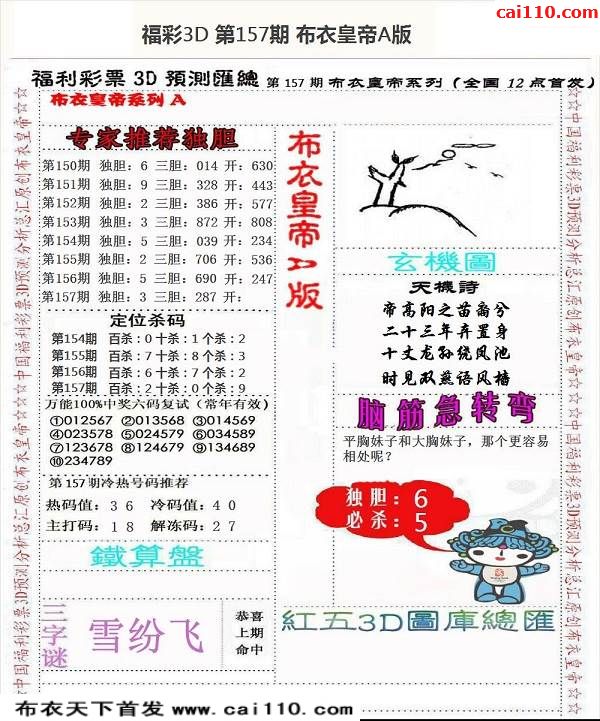 cai110.com
福彩3D 第157期 布衣皇帝A版
福利彩票3D預測匯總 第157期布衣皇帝系列(全国12点首发)
布衣皇帝系列A
专家推荐独胆
第150期 独胆：6 三胆：014 开：630
第151期 独胆：9 三胆：328 开：443
第152期 独胆：2 三胆：386 开：577
第153期 独胆：3 三胆：872 开：808
第154期 独胆：5 三胆：039 开：234
第155期 独胆：2 三胆：706 开：536
第156期 独胆：5 三胆：690 开：247
第157期 独胆：3 三胆：287 开：
定位杀码
第154期 百杀：0十杀：1个杀：2
第155期 百杀：7十杀：8个杀：3
第156期 百杀：6十杀：7个杀：2
第157期 百杀：2十杀：0个杀：9
万能100%中奖六码复试（常年有效）
①012567 ②013568 ③014569
④023578 ⑤024579 ⑥034589
⑦123678 ⑧124679 ⑨134689
⑩234789
第157期冷热号码推荐
热码值：36 冷码值：40
主打码：18 解冻码：27
鐵算盤
三字谜
雪纷飞
恭喜
上期
命中
布衣皇帝A版
玄機圖
天機詩
帝高阳之苗裔兮
二十三年弃置身
十丈龙孙绕凤池
时见双燕语风樯
脑筋急转弯
平胸妹子和大胸妹子，那个更容易
相处呢？
独胆：6
必杀：5
紅五3D圖庫總匯
☆☆中国福利彩票3D预测分析总汇原创布衣皇帝☆☆
☆☆中国福利彩票3D预测分析总汇原创布衣皇帝☆☆
布衣天下首发 www.cai110.com